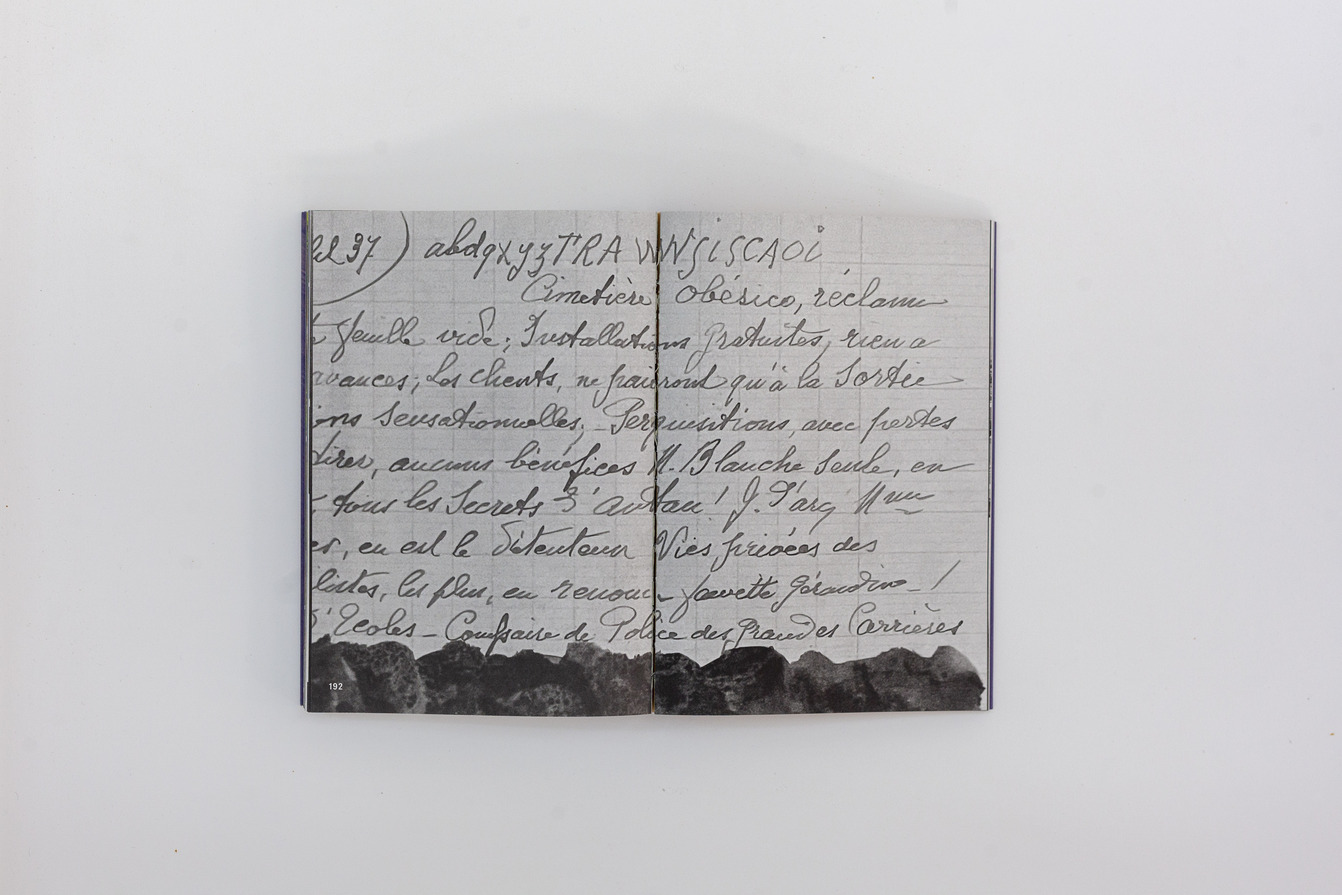 37) abdqxyzTRAWNSiSCAOi
Cimetière obésico, réclame
feuille vide; Installations gratuites, rien a
avances; Les clients, ne pairont qu'à la Sortie
Sensationnelles; - Perquisitions, avec pertes
aucuns bénéfices M. Blanche Seule, en
tous les Secrets d'autan! J. d'arg
en est le détenteur Vies privées des
listes, les plus, en renom - fauvette Gérandino - !
d'Ecoles - de Police des grandes Carrières
192